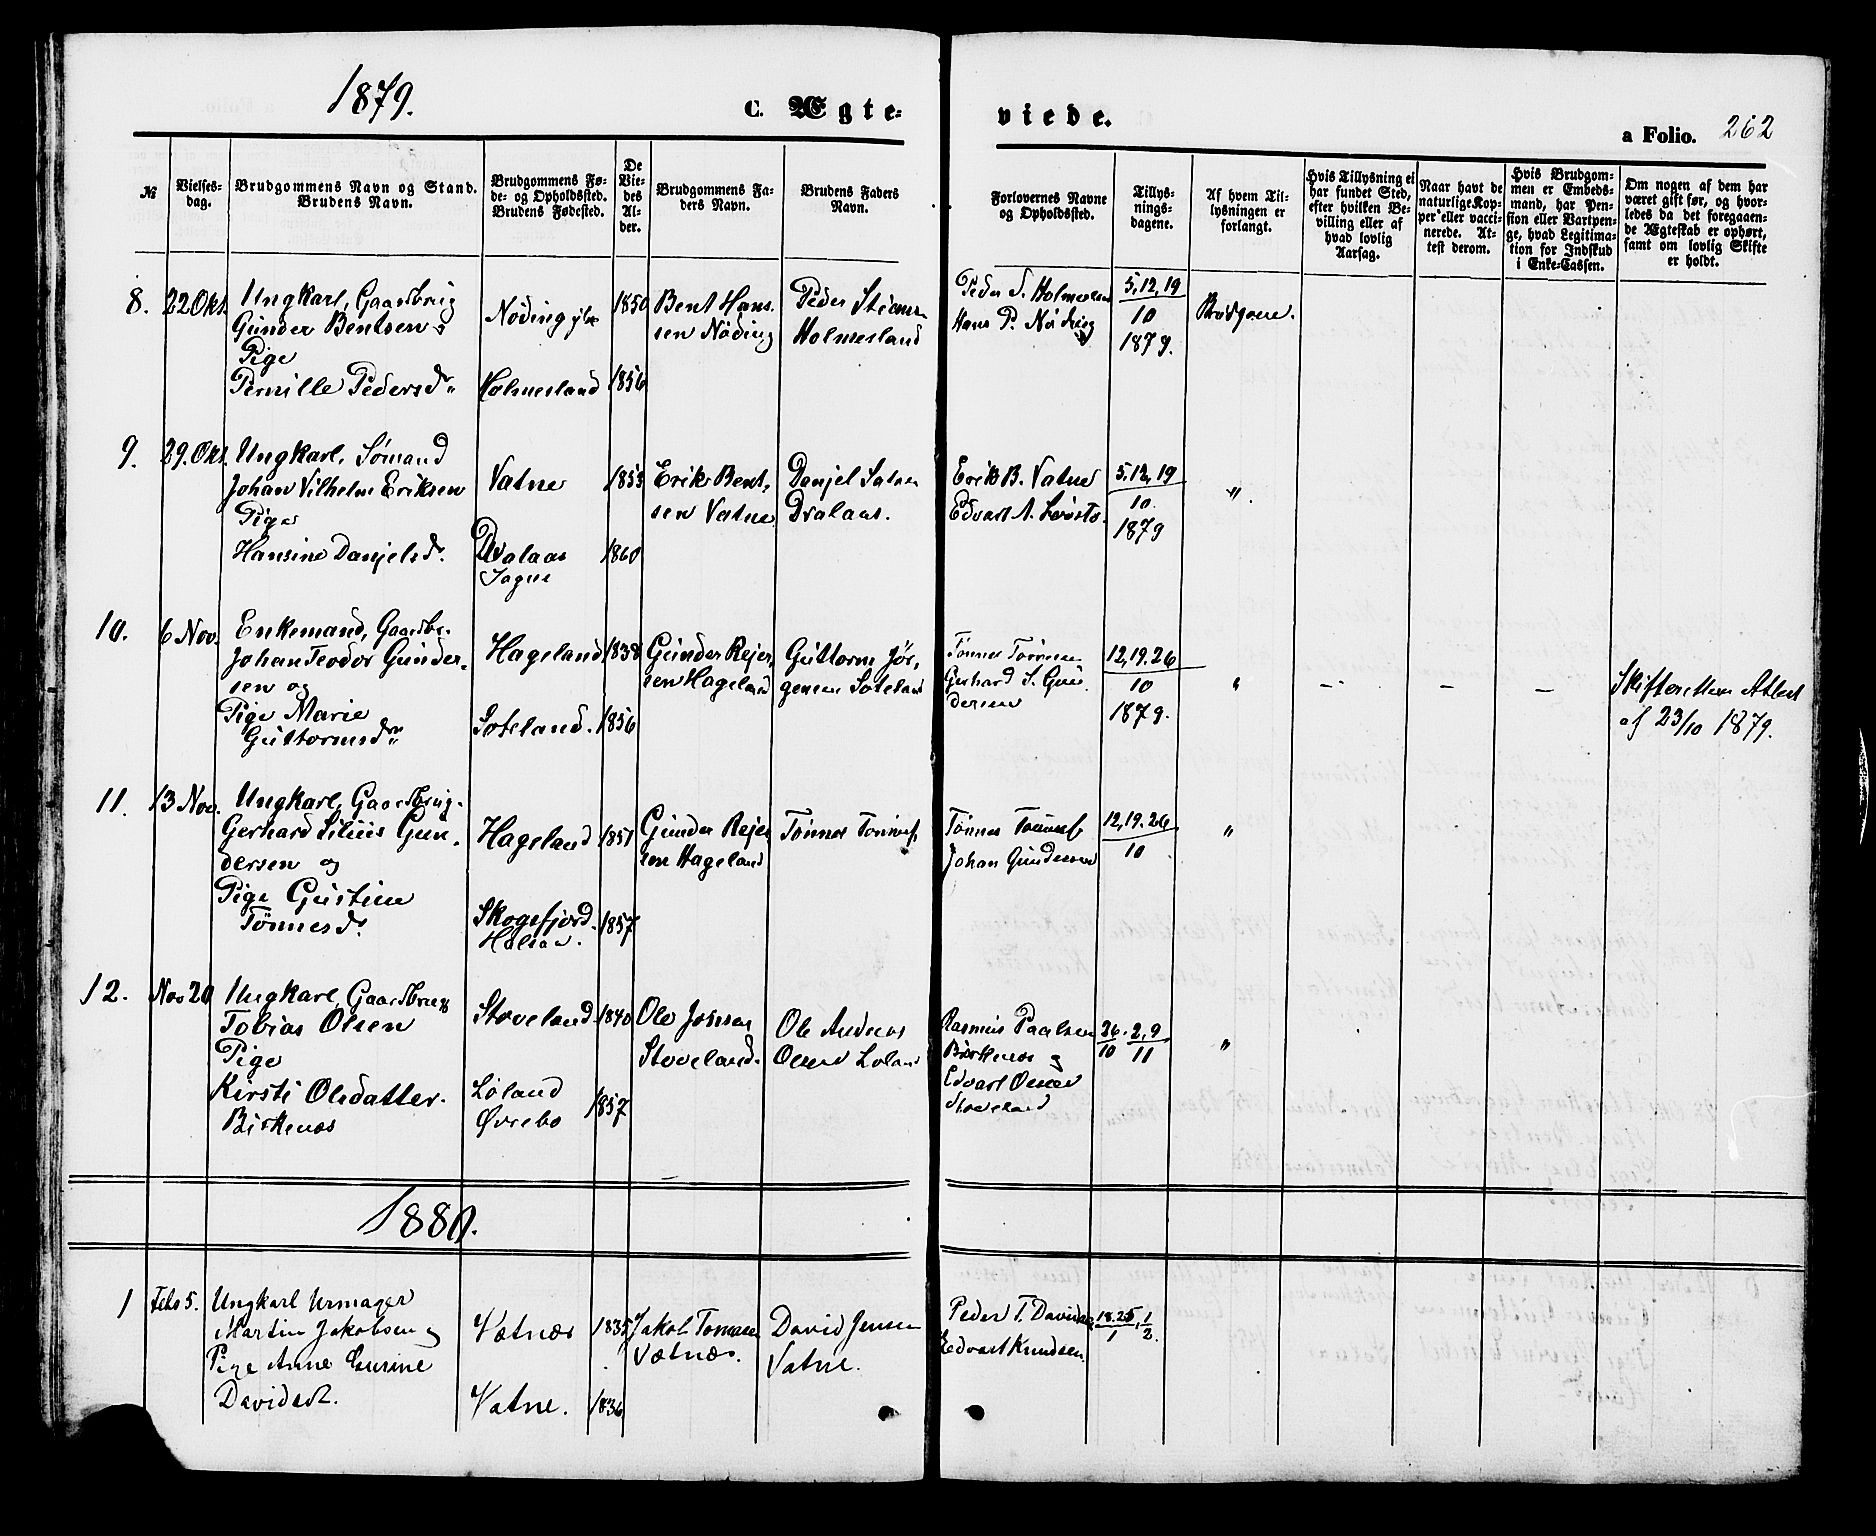 1879.
C. Ægte-
viede.
a Folio. 262
№
Vielses-
dag.
Brudgommens Navn og Stand.
Brudens Navn.
Brudgommens Fø-
de- og Opholdssted.
Brudens Fødested.
De
Vie-
des
Al-
der.
Brudgommens Fa-
ders Navn.
Brudens Faders
Navn.
Forlovernes Navne
og Opholdssted.
Tillys-
nings-
dagene.
Af hvem Til-
lysningen er
forlangt.
Hvis Tillysning ei
har fundet Sted,
efter hvilken Be-
villing eller af
hvad lovlig
Aarsag.
Naar havt de
naturlige Kop-
per eller vacci-
nerede. At-
test derom.
Hvis Brudgom-
men er Embeds-
mand, har Pen-
sion eller Vartpen-
ge, hvad Legitima-
tion for Indskud
i Enke-Cassen.
Om nogen af dem har
været gift før, og hvor-
ledes da det foregaaen-
de Ægteskab er ophørt,
samt om lovlig Skifte
er holdt.
8.
22 Okt.
Ungkarl, Gaardbrug
Gunder Bentsen
Pige
Pernille Pedersd.
Nøding
Holmesland
1850
1856
Bent Han-
sen Nøding
Peder
Holmesland
Peder S. Holmesland
Hans P. Nøding
5, 12, 19
10
1879.
9.
29. Okt.
Ungkarl, Sømand
Johan Vilhelm Eriksen
Pige
Hansine Danjelsd.
Vatne
Dvalaas
Søgne
1855
1860
Erik Bent-
sen Vatne
Danjel
Dvalaas.
Erik B. Vatne
Edvart A.
5, 12, 19
10.
1879
"
10.
6 Nov.
Enkemand, Gaardbr.
Johan Teodor Gunder-
sen og
Pige Marie
Guttormsd.
Hageland
Soteland.
1838
1856
Gunder Rejer-
sen Hageland
Guttorm Jør-
gensen Soteland
Tønnes
Gerhard S. Gun-
dersen
12, 19. 26
10
1879.
"
–
–
–
Skifterettens Attest
af 23/10 1879.
11.
13 Nov.
Ungkarl, Gaardbrug.
Gerhard Silius Gun-
dersen og
Pige Gustine
Tønnesd.
Hageland
Skogsfjord.
1851
1857
Gunder Rejer-
sen Hageland
Tønnes
Tønnes
Johan Gundersen
12, 19. 26
10
"
12.
Nov 20
Ungkarl, Gaardbrug
Tobias Olsen
Pige
Kirsti Olsdatter.
Birkenæs
Stoveland.
Løland
Øvrebø
1840
1857
Ole
Stoveland.
Ole Andreas
Olsen Løland
Rasmus Paalsen
Birkenæs og
Edvart Olsen
Stoveland
26. 2, 9
10 11
"
1880.
1
Feb 5.
Ungkarl Urmager
Martin Jakobsen og
Pige Anne Gurine
Davidsd.
Vetnæs
Vatne.
1835
1836
Jakob Tomassen
Vætnæs.
David Jensen
Vatne.
Peder T. Davidsen
Edvart Knudsen.
18. 25, 1
1 2.